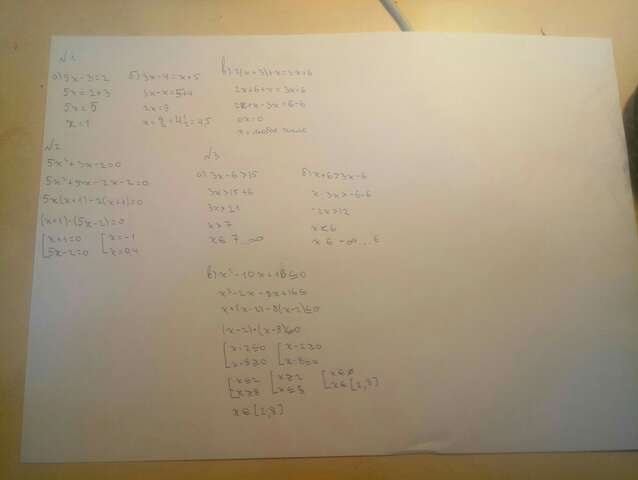 №1
а) 5x-3=2
5x=2+3
5x=5
x=1
б) 3x-4=x+5
3x-x=5+4
2x=9
x=9/2=4 1/2=4,5
в) 2(x+3)+x=3x+6
2x+6+x=3x+6
2x+x-3x=6-6
0x=0
x=любое число
№2
5x²+3x-2=0
5x²+5x-2x-2=0
5x(x+1)-2(x+1)=0
(x+1)·(5x-2)=0
[x+1=0 [x=-1
5x-2=0 x=0,4
№3
а) 3x-6>15
3x>15+6
3x>21
x>7
x∈ 7...∞
x+6>3x-6
x-3x>-6-6
x<6
x∈ -∞...6
x²-2x-8x+16≤
(x-2)·(x-8)≤0
[x-2≤0 [x-2≥0
x-8≥0 x-8≤0
[x≤2 [x≥2 [x∈∅
x≥8 x≤8 x∈[2,8]
x∈[2,8]